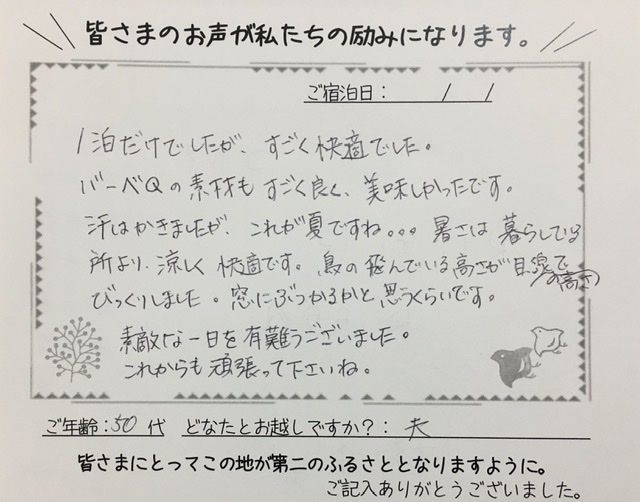 皆さまのお声が私たちの励みになります。
ご宿泊日： / /
1泊だけでしたが、すごく快適でした。
バーベQの素材もすごく良く、美味しかったです。
汗はかきましたが、これが夏ですね。。。暑さは暮らしている
所より、涼しく快適です。鳥の飛んでいる高さが目線の高さで
びっくりしました。窓にぶつかるかと思うくらいです。
素敵な一日を有難うございました。
これからも頑張って下さいね。
ご年齢：50代 どなたとお越しですか？：夫
皆さまにとってこの地が第二のふるさととなりますように。
ご記入ありがとうございました。